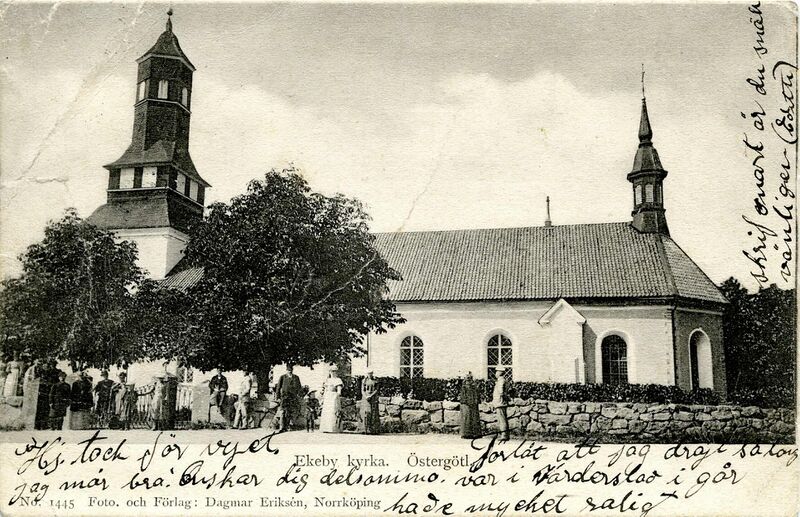 Hj. tack för vyet.
Ekeby kyrka. Östergötl.
Förlåt att jag dröjt så long
jag mår bra. Önskar dig detsamma. var i Vårderslad i går
No. 1445 Foto. och Förlag: Dagmar Eriksén, Norrköping
hade mycket roligt
skrif snart är du snäll
vänligen